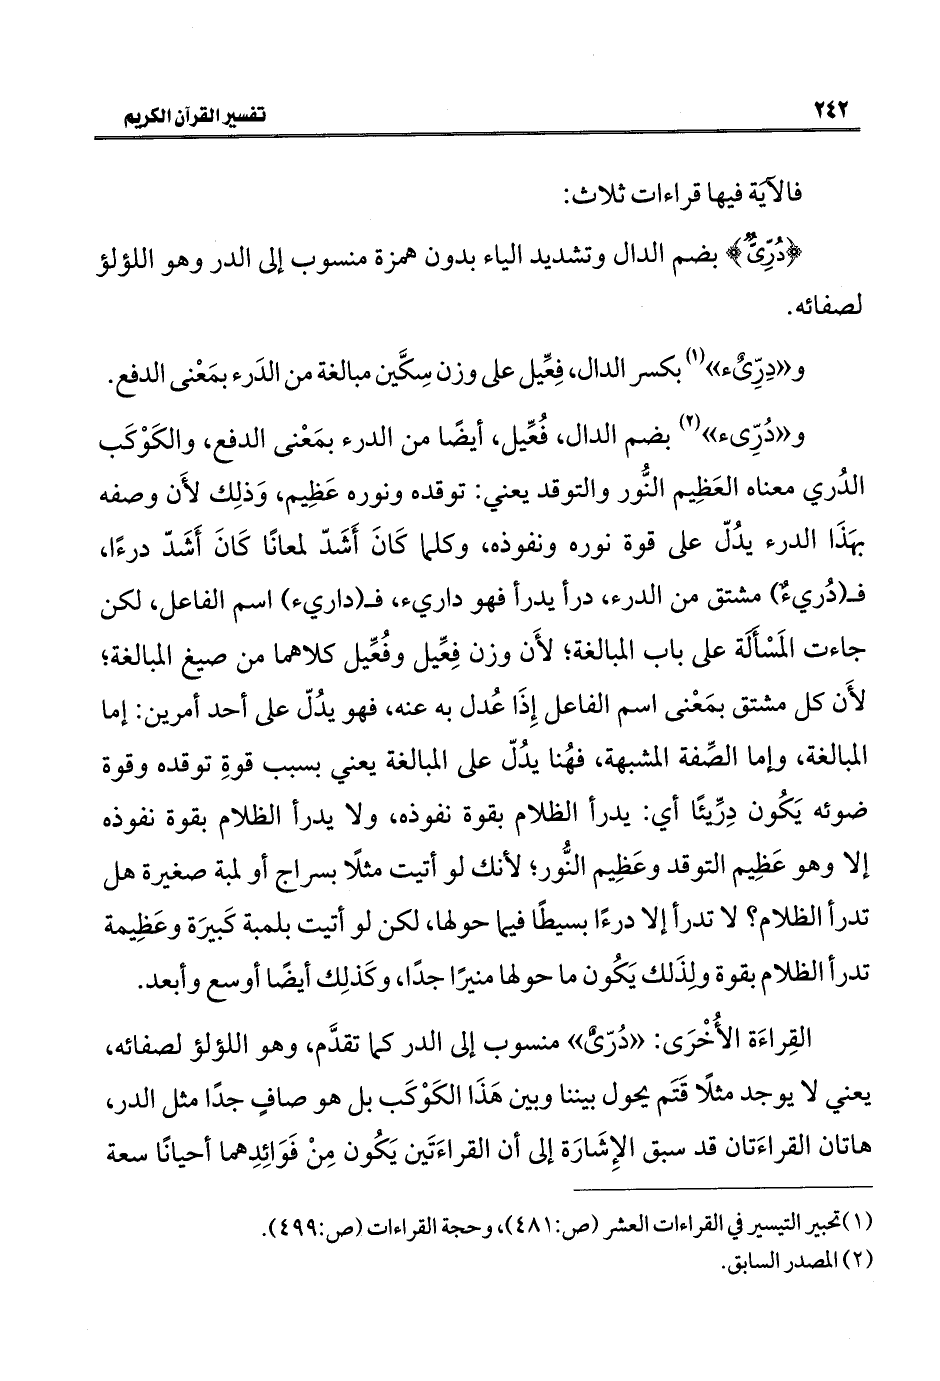 ٢٤٢
تفسير القرآن الكريم
فالآيَة فيها قراءات ثلاث:
﴿دُرِّىٌّ﴾ بضم الدال وتشديد الياء بدون همزة منسوب إلى الدر وهو اللؤلؤ
لصفائه.
و«دِرِّىٌء»(١) بكسر الدال، فِعِّيل على وزن سِكَّين مبالغة من الدَرء بمَعْنى الدفع.
و«دُرِّىء»(٢) بضم الدال، فُعِّيل، أيضًا من الدرء بمَعْنى الدفع، والكَوْكَب
الدُري معناه العَظِيم النُّور والتوقد يعني: توقده ونوره عَظِيم، وَذلِك لأَن وصفه
بهَذَا الدرء يدُلّ على قوة نوره ونفوذه، وكلما كَانَ أَشَدّ لمعانًا كَانَ أَشَدّ درءًا،
فـ(دُريءٌ) مشتق من الدرء، درأ يدرأ فهو داريء، فـ(داريء) اسم الفاعل، لكن
جاءت المَسْأَلَة على باب المبالغة؛ لأَن وزن فِعِّيل وفُعِّيل كلاهما من صيغ المبالغة؛
لأَن كل مشتق بمَعْنى اسم الفاعل إِذَا عُدل به عنه، فهو يدُلّ على أحد أمرين: إما
المبالغة، وإما الصِّفة المشبهة، فهُنا يدُلّ على المبالغة يعني بسبب قوةِ توقده وقوة
ضوئه يَكُون دِرِّيئًا أي: يدرأ الظلام بقوة نفوذه، ولا يدرأ الظلام بقوة نفوذه
إلا وهو عَظِيم التوقد وعَظِيم النُّور؛ لأنك لو أتيت مثلًا بسراج أو لمبة صغيرة هل
تدرأ الظلام؟ لا تدرأ إلا درءًا بسيطًا فيما حولها، لكن لو أتيت بلمبة كَبيرَة وعَظِيمة
تدرأ الظلام بقوة ولِذَلك يَكُون ما حولها منيرًا جدًا، وكَذلِك أيضًا أوسع وأبعد.
القِراءَة الأُخْرَى: «دُرّىٌّ» منسوب إلى الدر كما تقدَّم، وهو اللؤلؤ لصفائه،
يعني لا يوجد مثلًا قَتَم يحول بيننا وبين هَذَا الكَوْكَب بل هو صافٍ جدًا مثل الدر،
هاتان القراءَتان قد سبق الإِشارَة إلى أن القراءَتَين يَكُون مِنْ فَوَائِدِهما أحيانًا سعة
(١) تحبير التيسير في القراءات العشر (ص:٤٨١)، وحجة القراءات (ص:٤٩٩).
(٢) المصدر السابق.